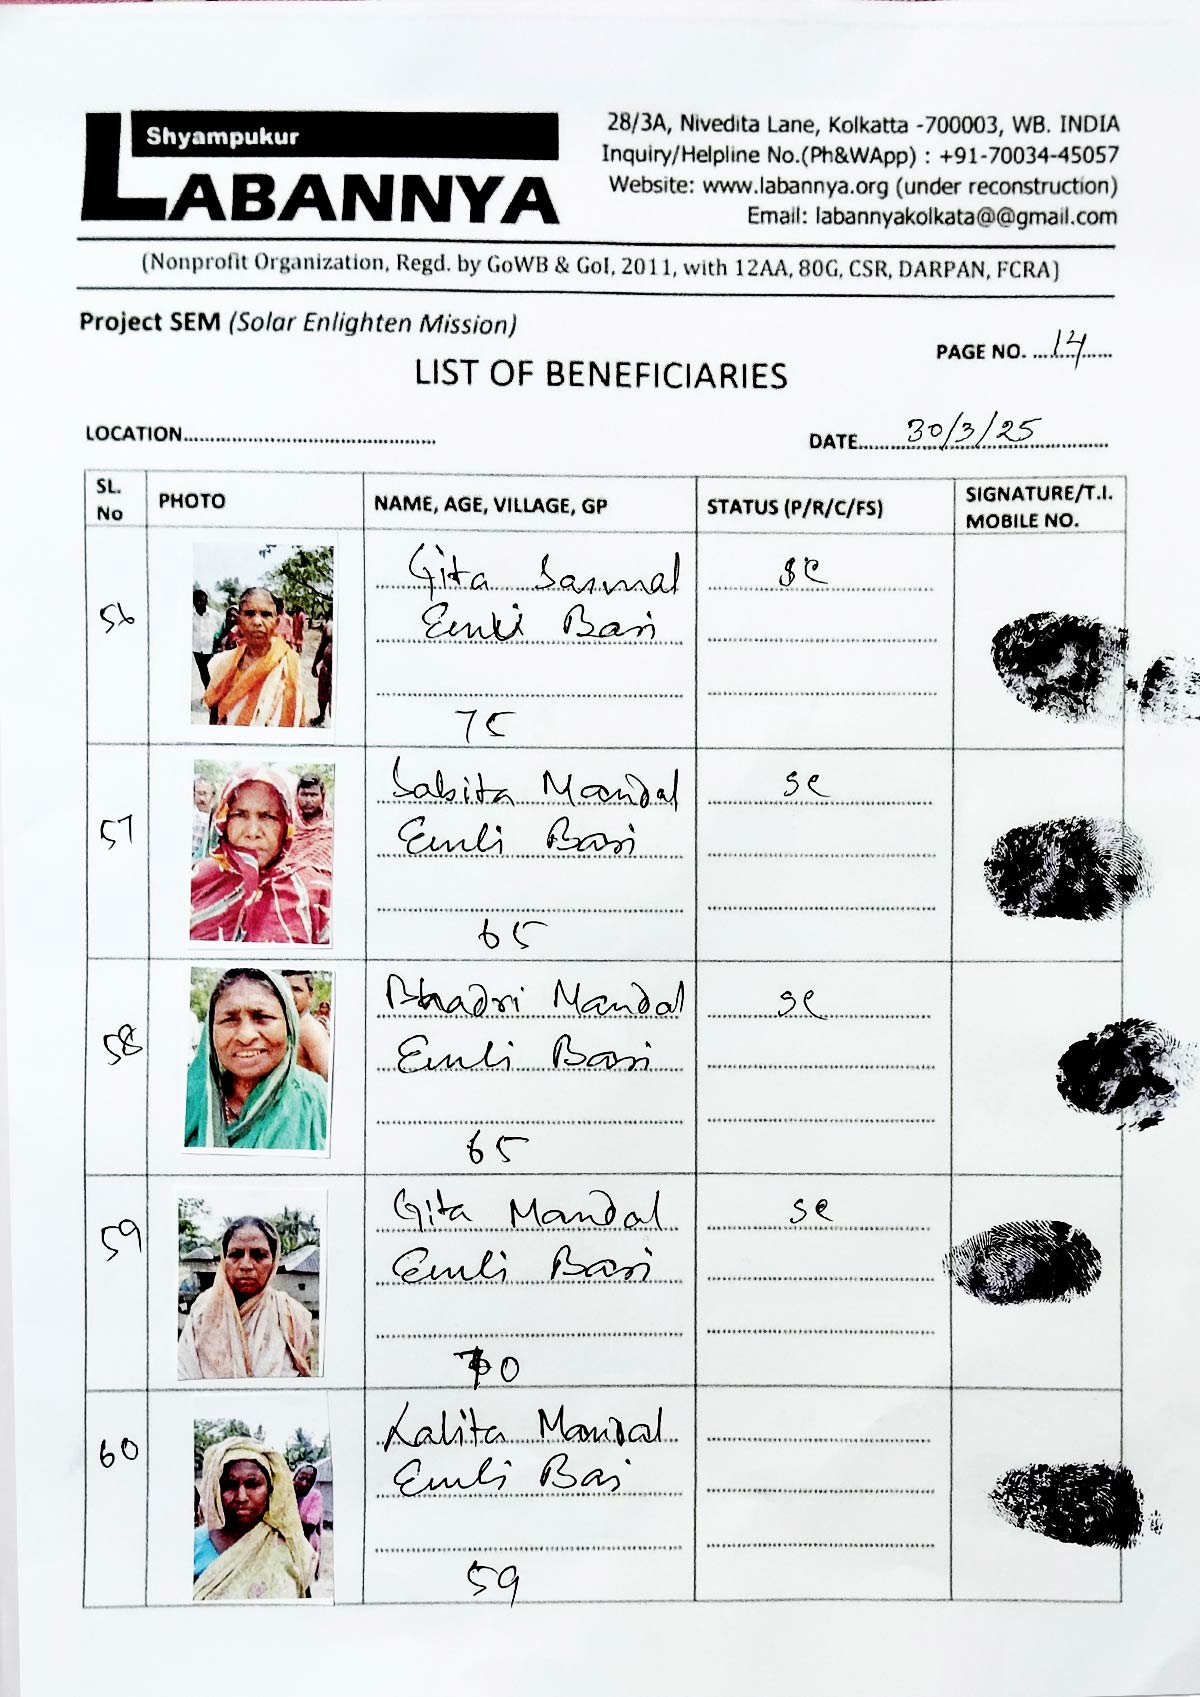 Shyampukur
LABANNYA
28/3A, Nivedita Lane, Kolkatta -700003, WB. INDIA
Inquiry/Helpline No.(Ph&WApp) : +91-70034-45057
Website: www.labannya.org (under reconstruction)
Email: labannyakolkata@@gmail.com
(Nonprofit Organization, Regd. by GoWB & GoI, 2011, with 12AA, 80G, CSR, DARPAN, FCRA)
Project SEM (Solar Enlighten Mission)
PAGE NO. 14
LIST OF BENEFICIARIES
LOCATION
DATE 30/3/25
SL. No PHOTO NAME, AGE, VILLAGE, GP STATUS (P/R/C/FS) SIGNATURE/T.I. MOBILE NO.
56 Gita Sasmal SC
Emli Bari
75
57 Sabita Mandal SC
Emli Bari
65
58 Bhadri Mandal SC
Emli Bari
65
59 Gita Mandal SC
Emli Bari
70
60 Lalita Mandal
Emli Bari
59